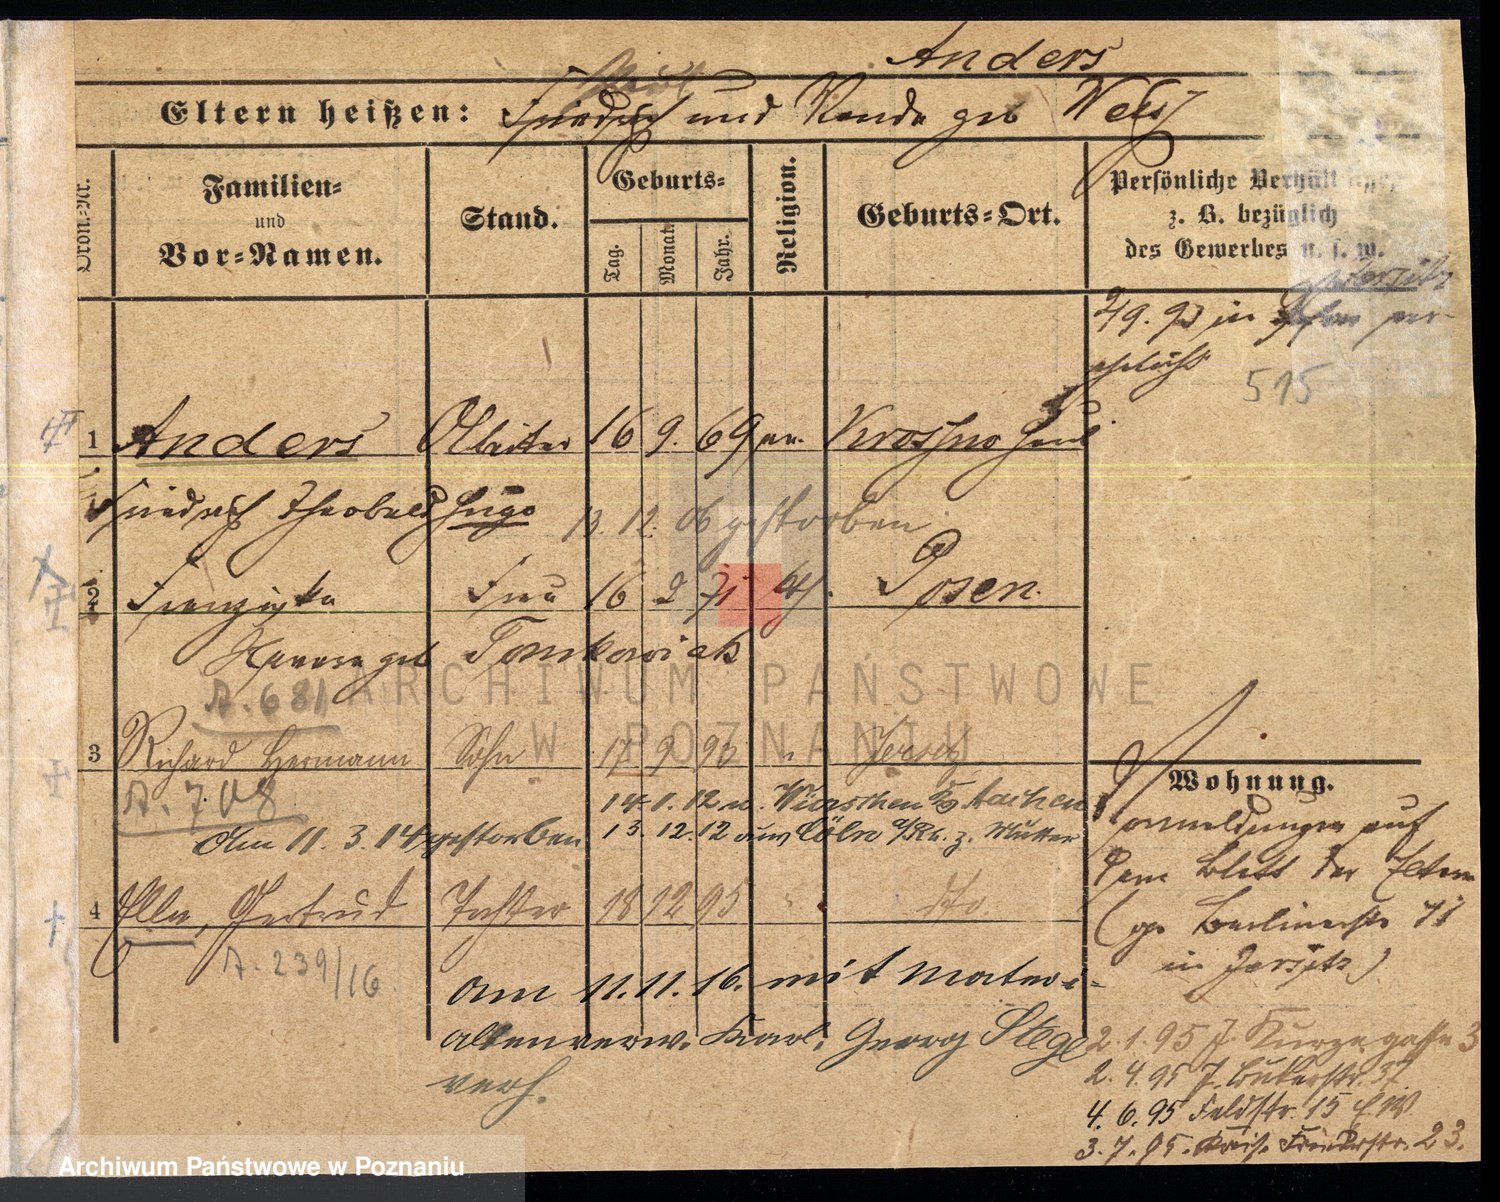 Anders
Eltern heißen: Friedrich und Wanda geb
Ordn.-Nr.
Familien-
und
Vor-Namen.
Stand.
Geburts-
Tag.
Monat.
Jahr.
Religion.
Geburts-Ort.
Persönliche Verhältnisse
z. B. bezüglich
des Gewerbes u. s. w.
in
ehelicht
515
1 Anders Arbeiter 16 9. 69 ev. Kroshno
Friedrich Theobald Hugo 13. 12. 06 gestorben
2 Franziska Frau 16 2 71 kth. Posen.
geb Tomkowiak
A. 681
3 Richard Hermann Sohn 17 9 93 " Jersitz
A. 708
14. 1. 12 n. Würselen Kr Aachen
Am 11. 3. 14 gestorben 13. 12. 12 aus Cöln a/Rh. z. Mutter
4 Ella, Gertrud Tochter 18 12 95 " dto.
A. 239/16
am 11. 11. 16. mit Materi-
alienverw. Karl, Georg Stege
verh.
Wohnung.
Anmeldungen auf
dem Blatt der Eltern
Berlinerstr 71
in Jersitz)
2. 1. 95 J. Kurze gasse 3
2. 4. 95 J. Bukerstr. 37
4. 6. 95 Feldstr. 15
3. 7. 95. Kais. Friedrstr. 23.
ARCHIWUM PAŃSTWOWE
W POZNANIU
Archiwum Państwowe w Poznaniu